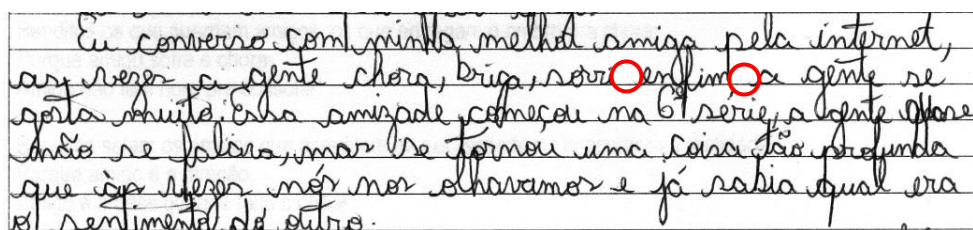 Eu converso com minha melhor amiga pela internet,
as vezes a gente chora, briga, sorri enfim a gente se
gosta muito. Essa amizade começou na 6ª série, a gente quase
não se falava, mas se tornou uma coisa tão profunda
que às vezes nós nos olhavamos e já sabia qual era
o sentimento do outro.